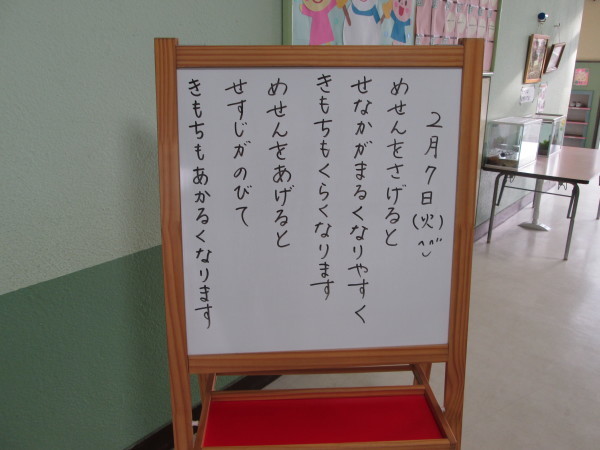 2月7日(火)^^
めせんをさげると
せなかがまるくなりやすく
きもちもくらくなります
めせんをあげると
せすじがのびて
きもちもあかるくなります